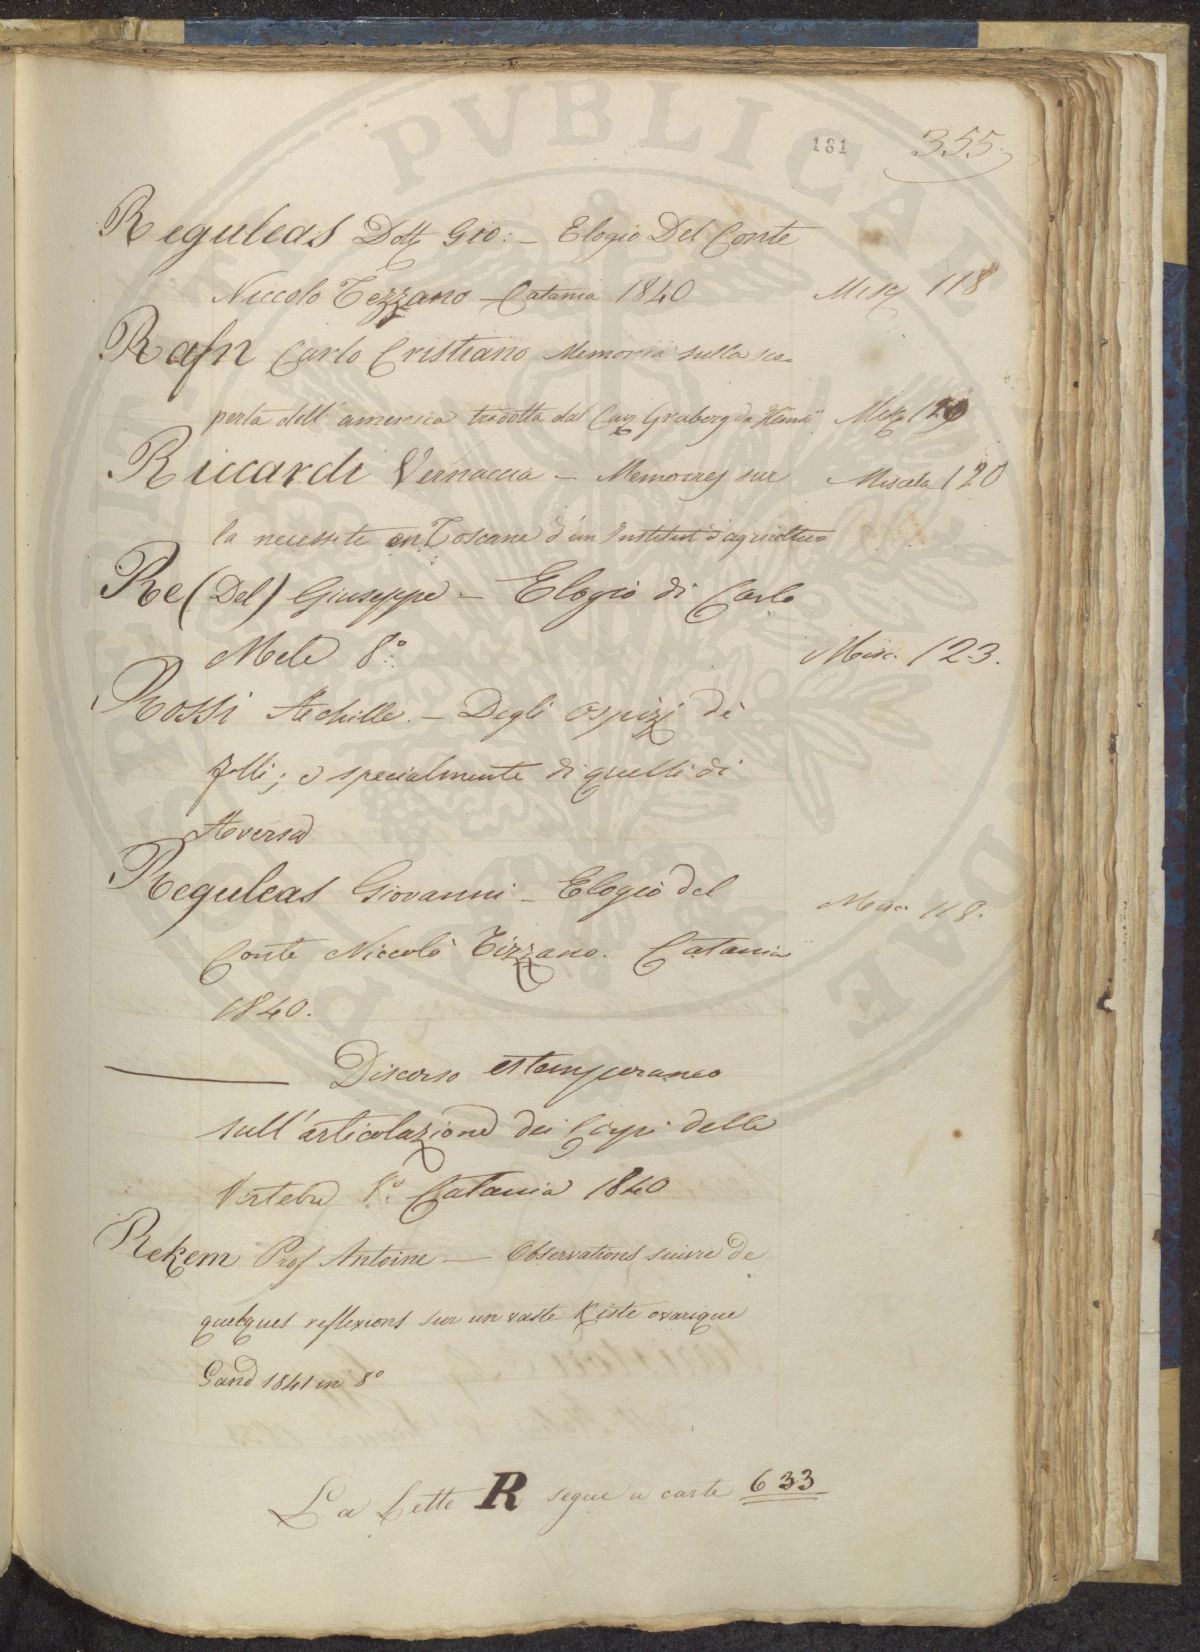 181 355
Reguleas Dott Gio: – Elogio Del Conte
Niccolo Tezzano – Catania 1840 Misc 118
Rafn Carlo Cristiano Memoria sulla sco-
perta dell' america tradotta dal Cav Graberg da Hemsö
Riccardi Vernaccia – Memoires sur Miscela 120
la necessite en Toscane d'un Institut d'agriculture
Re (Del) Giuseppe – Elogio di Carlo
Mele 8º Misc. 123.
Rossi Achille. – Degli ospizj dè
folli; e specialmente di quelli di
Aversa
Reguleas Giovanni – Elogio del
Conte Niccolò Tizzano. Catania 118.
1840.
Discorso estemporaneo
sull'articolazione dei Corpi delle
Vertebre 8º Catania 1840
Rekem Prof Antoine — Observations suivie de
quelques reflexions sur un vaste Kiste ovarique
Gand 1841 in 8º
La Lette R segue a carte 633
PVBLICAE